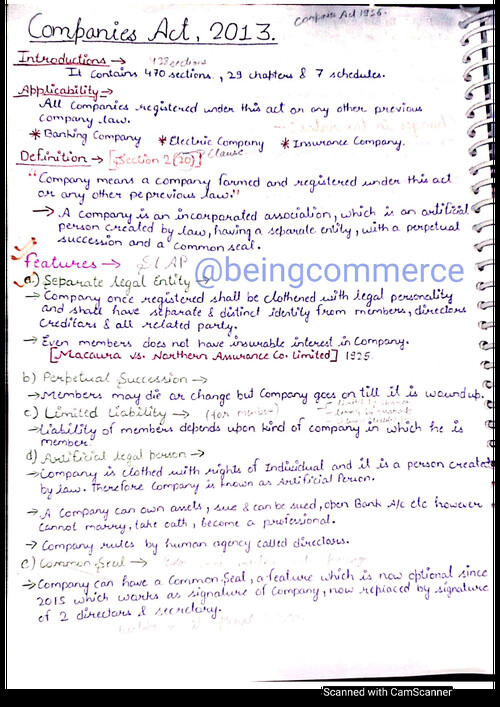 Company Act 1956.
Companies Act, 2013.
Introductions →
It contains 470 sections, 29 chapters & 7 schedules.
Applicability →
All companies registered under this act or any other previous
company law.
* Banking Company * Electric Company * Insurance Company.
Definition → [Section 2(20)] Clause
"Company means a company formed and registered under this act
or any other pe previous law."
→ A company is an incorporated association, which is an artificial
person created by law, having a separate entity, with a perpetual
succession and a common seal.
features → SLAP
@beingcommerce
a) Separate legal Entity →
→ Company once registered shall be clothed with legal personality
and shall have separate & distinct identity from members, directors
Creditors & all related party.
→ Even members does not have insurable interest in Company.
[Macaura vs. Northern Assurance Co. limited] 1925
b) Perpetual Succession →
→ Members may die or change but Company goes on till it is woundup.
c) Limited Liability → (for member)
→ Liability of members depends upon kind of company in which he is
member
d) Artificial legal person →
→ Company is clothed with rights of Individual and it is a person created
by law. Therefore Company is known as Artificial Person.
→ A Company can own assets, sue & can be sued, open Bank A/c etc however
cannot marry, take oath, become a professional.
→ Company rules by human agency called directors.
e) Common Seal →
→ Company can have a Common Seal, a feature which is now optional since
2015 which works as signature of Company, now replaced by signature
of 2 directors & secretary.
Scanned with CamScanner